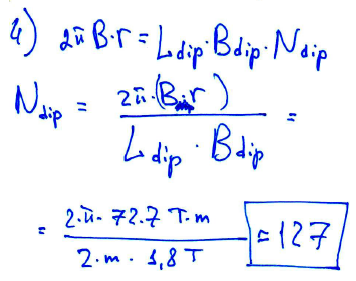 4) 2π B·r = L dip · B dip · N dip
N dip = 2π·(B·r) / L dip · B dip =
= 2·π· 72.7 T·m / 2·m · 1,8 T ≈ 127